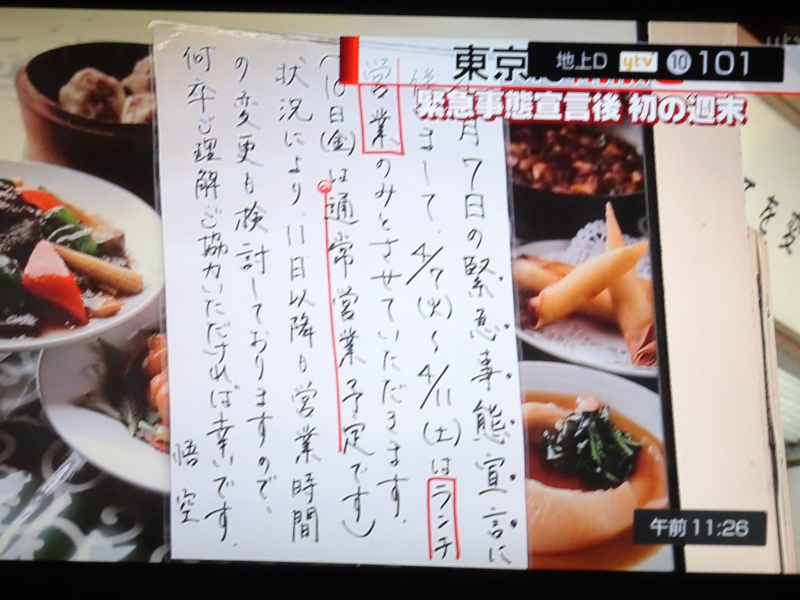 東京
地上D ytv 10 101
緊急事態宣言後 初の週末
月7日の緊急事態宣言に
まして、4/7(火)~4/11(土)はランチ
営業のみとさせていただきます。
(10日(金)は通常営業予定です)
状況により、11日以降も営業時間
の変更も検討しておりますので、
何卒ご理解ご協力いただければ幸いです。
悟空
午前11:26